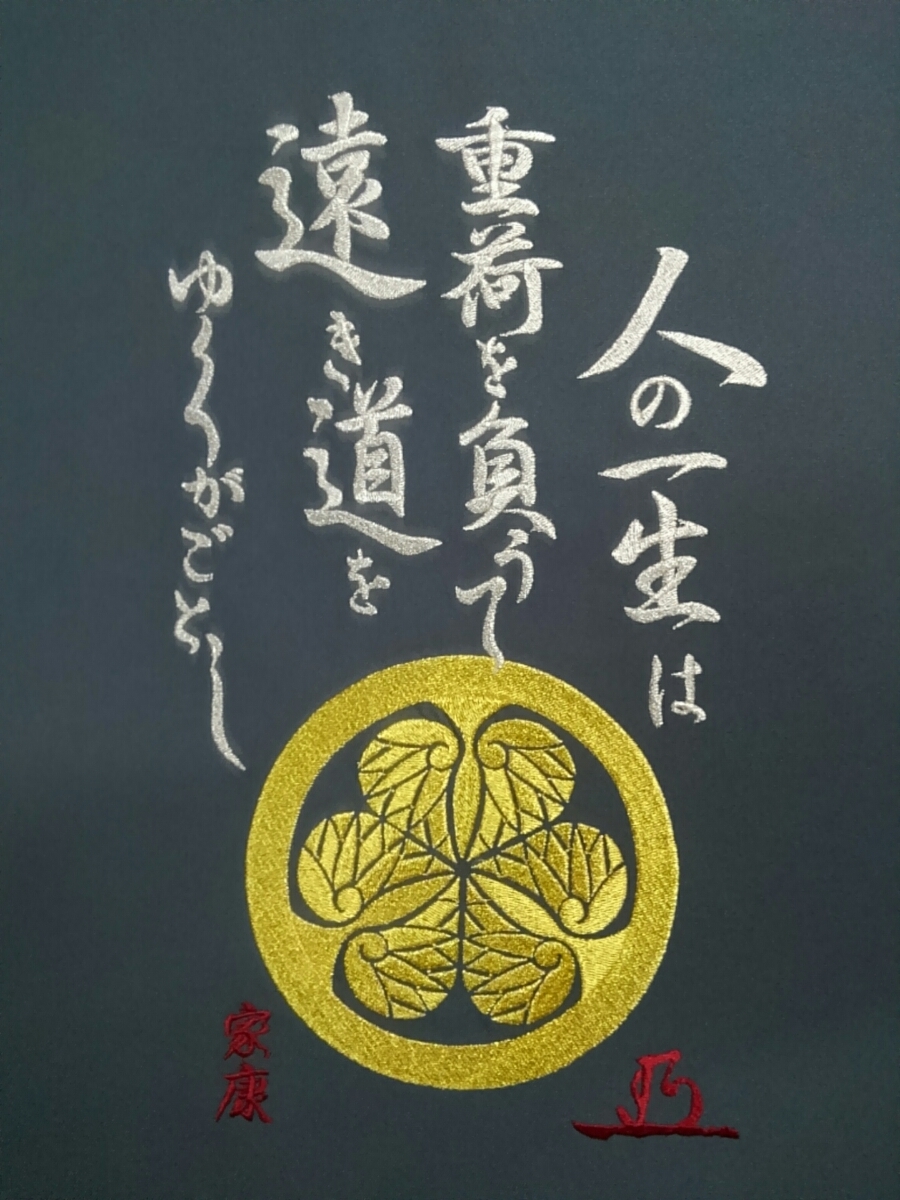 人の一生は
重荷を負うて
遠き道を
ゆくがごとし
家康